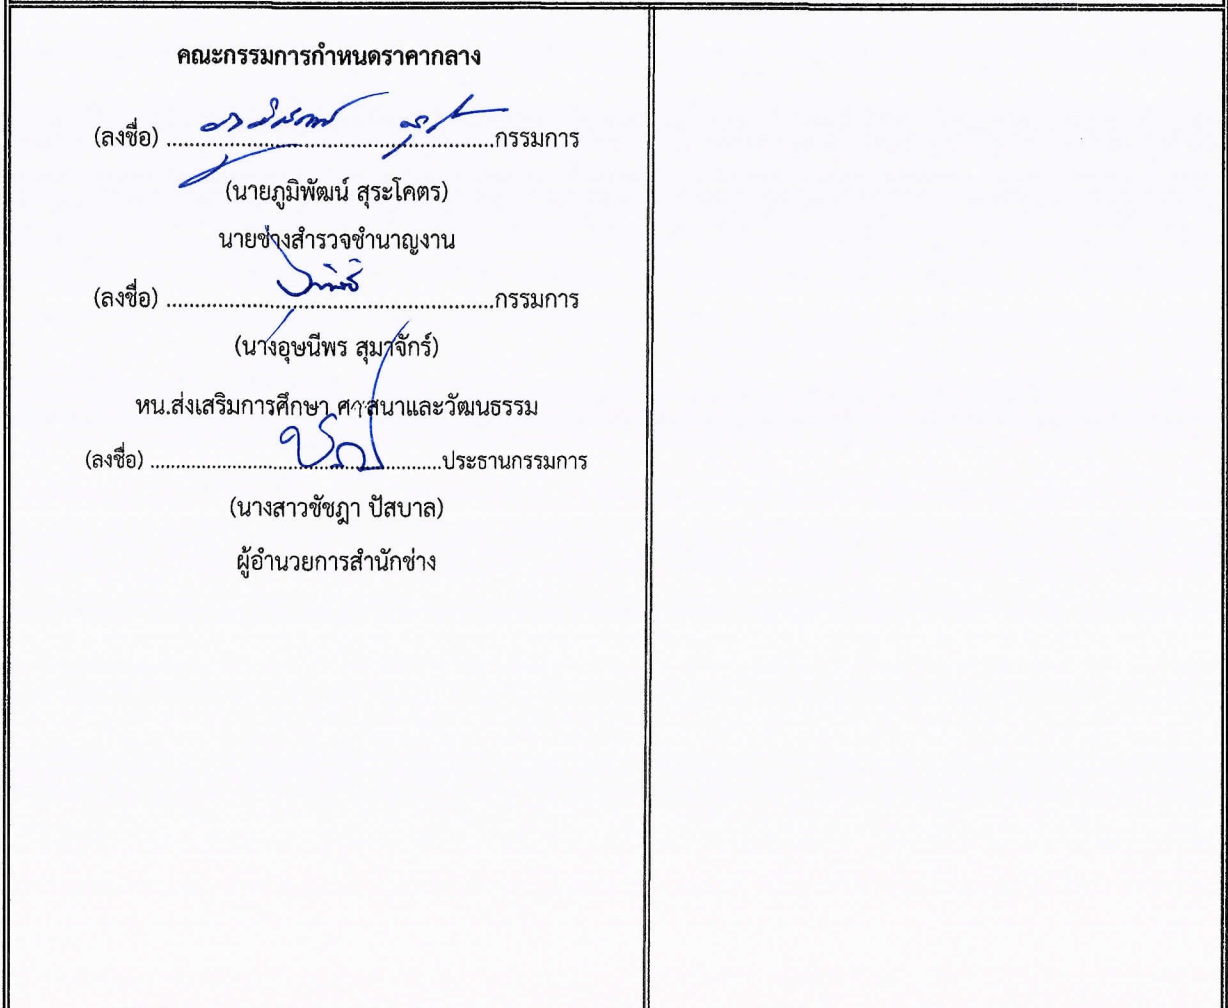 คณะกรรมการกำหนดราคากลาง
(ลงชื่อ) ............................................................กรรมการ
(นายภูมิพัฒน์ สุระโคตร)
นายช่างสำรวจชำนาญงาน
(ลงชื่อ) ............................................................กรรมการ
(นางอุษนีพร สุมาจักร์)
หน.ส่งเสริมการศึกษา ศาสนาและวัฒนธรรม
(ลงชื่อ) ......................................................ประธานกรรมการ
(นางสาวชัชฎา ปัสบาล)
ผู้อำนวยการสำนักช่าง